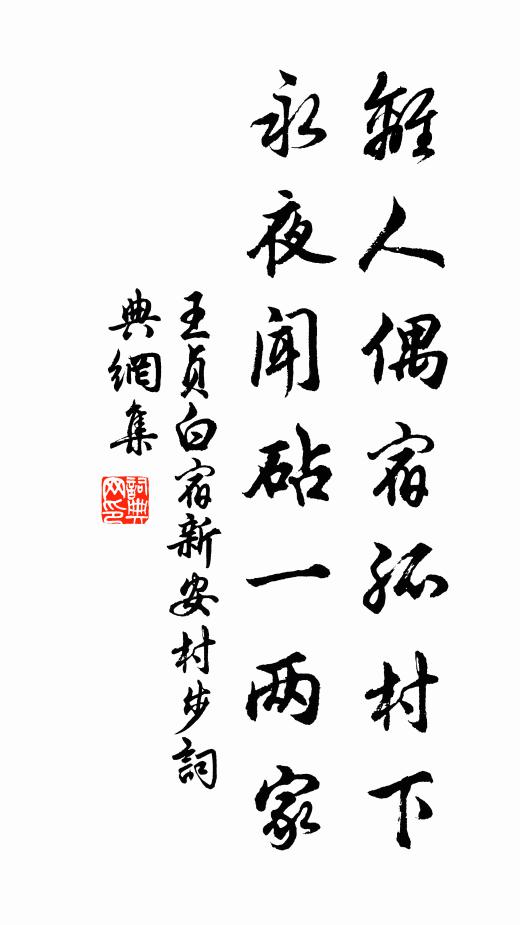 離人偶宿孤村下
永夜聞砧一两家
王貞白宿新安村步詞
典網集
詞典網印